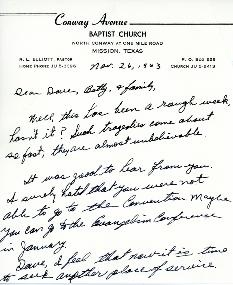 Conway Avenue
BAPTIST CHURCH
NORTH CONWAY AT ONE MILE ROAD
MISSION, TEXAS
R. L. ELLIOTT, PASTOR
HOME PHONE JU 5-3096
P. O. BOX 528
CHURCH JU 5-2413
Nov. 26, 1963
Dear Dave, Betty, & family,
Well, this has been a rough week,
hasn't it? Such tragedies come about
so fast, they are almost unbelievable.
It was good to hear from you.
I surely hate that you were not
able to go to the Convention Maybe
you can go to the Evangelism Conference
in January.
Dave, I feel that now it is time
to seek another place of service.